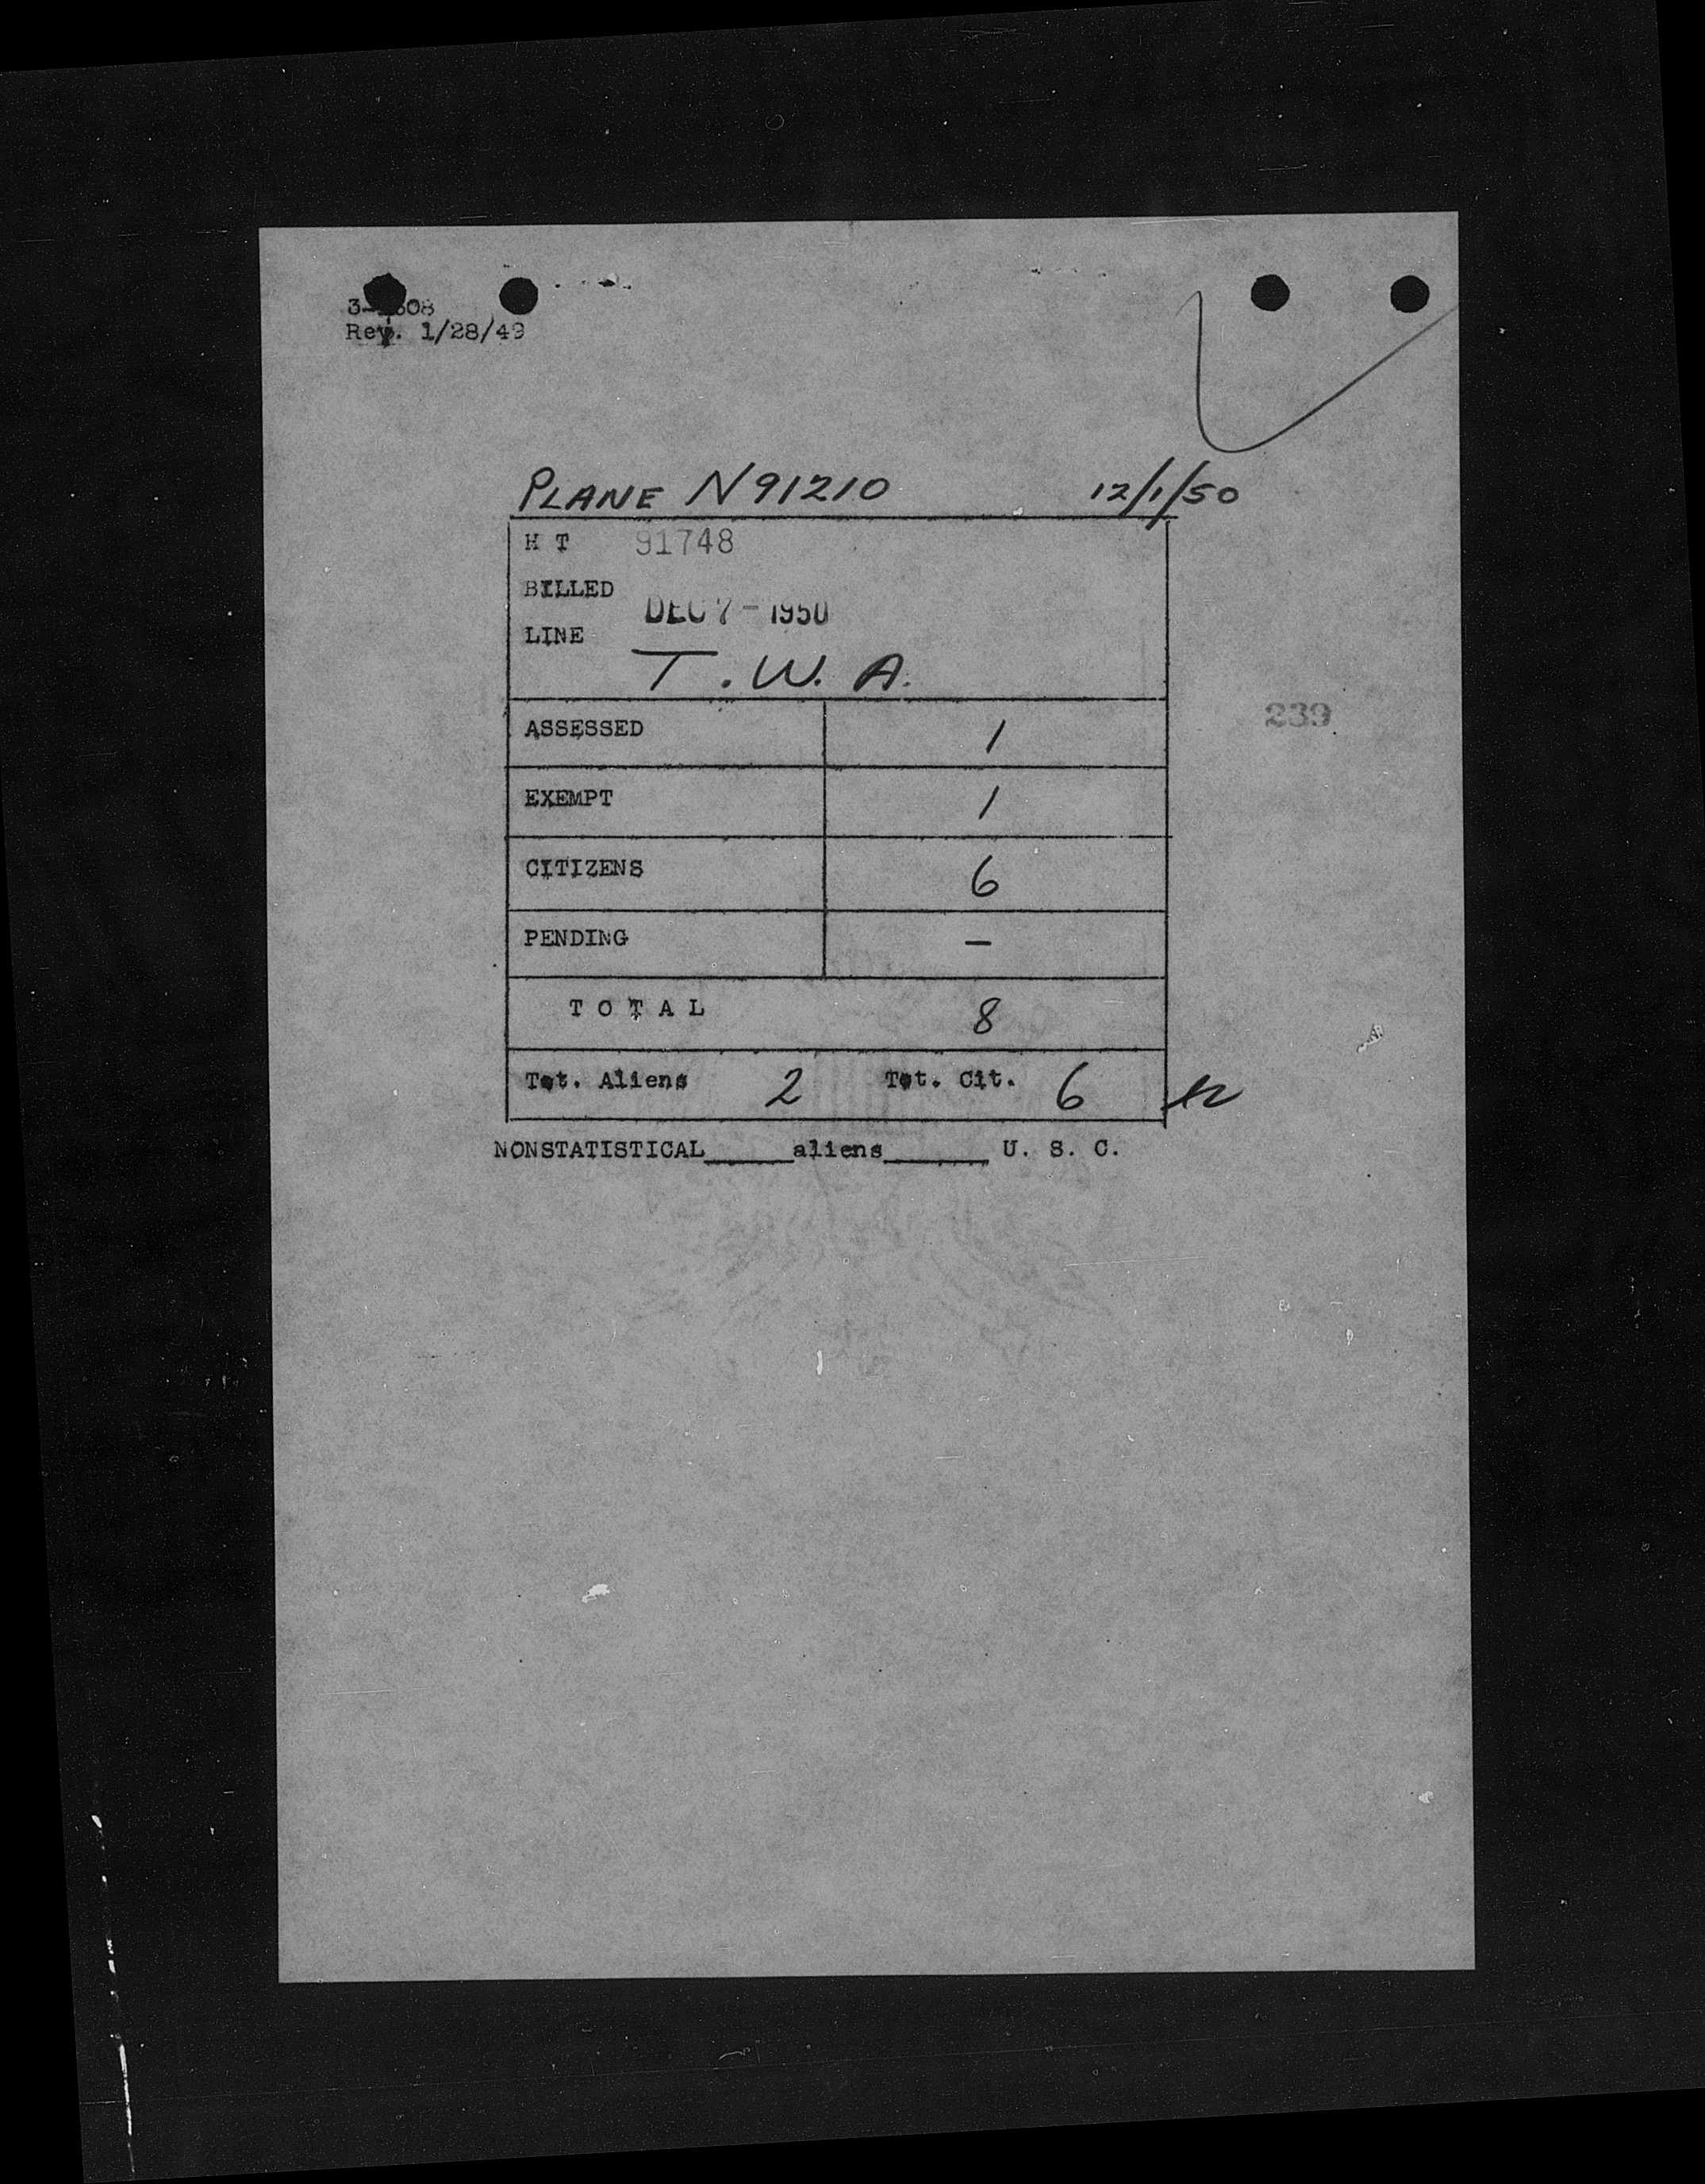 Rev. 1/28/49
PLANE N91210 12/1/50
H T 91748
BILLED
DEC 7 - 1950
LINE
T.W.A.
239
ASSESSED 1
EXEMPT 1
CITIZENS 6
PENDING —
T O T A L 8
Tot. Aliens 2 Tot. Cit. 6
NONSTATISTICAL_____aliens______ U. S. C.